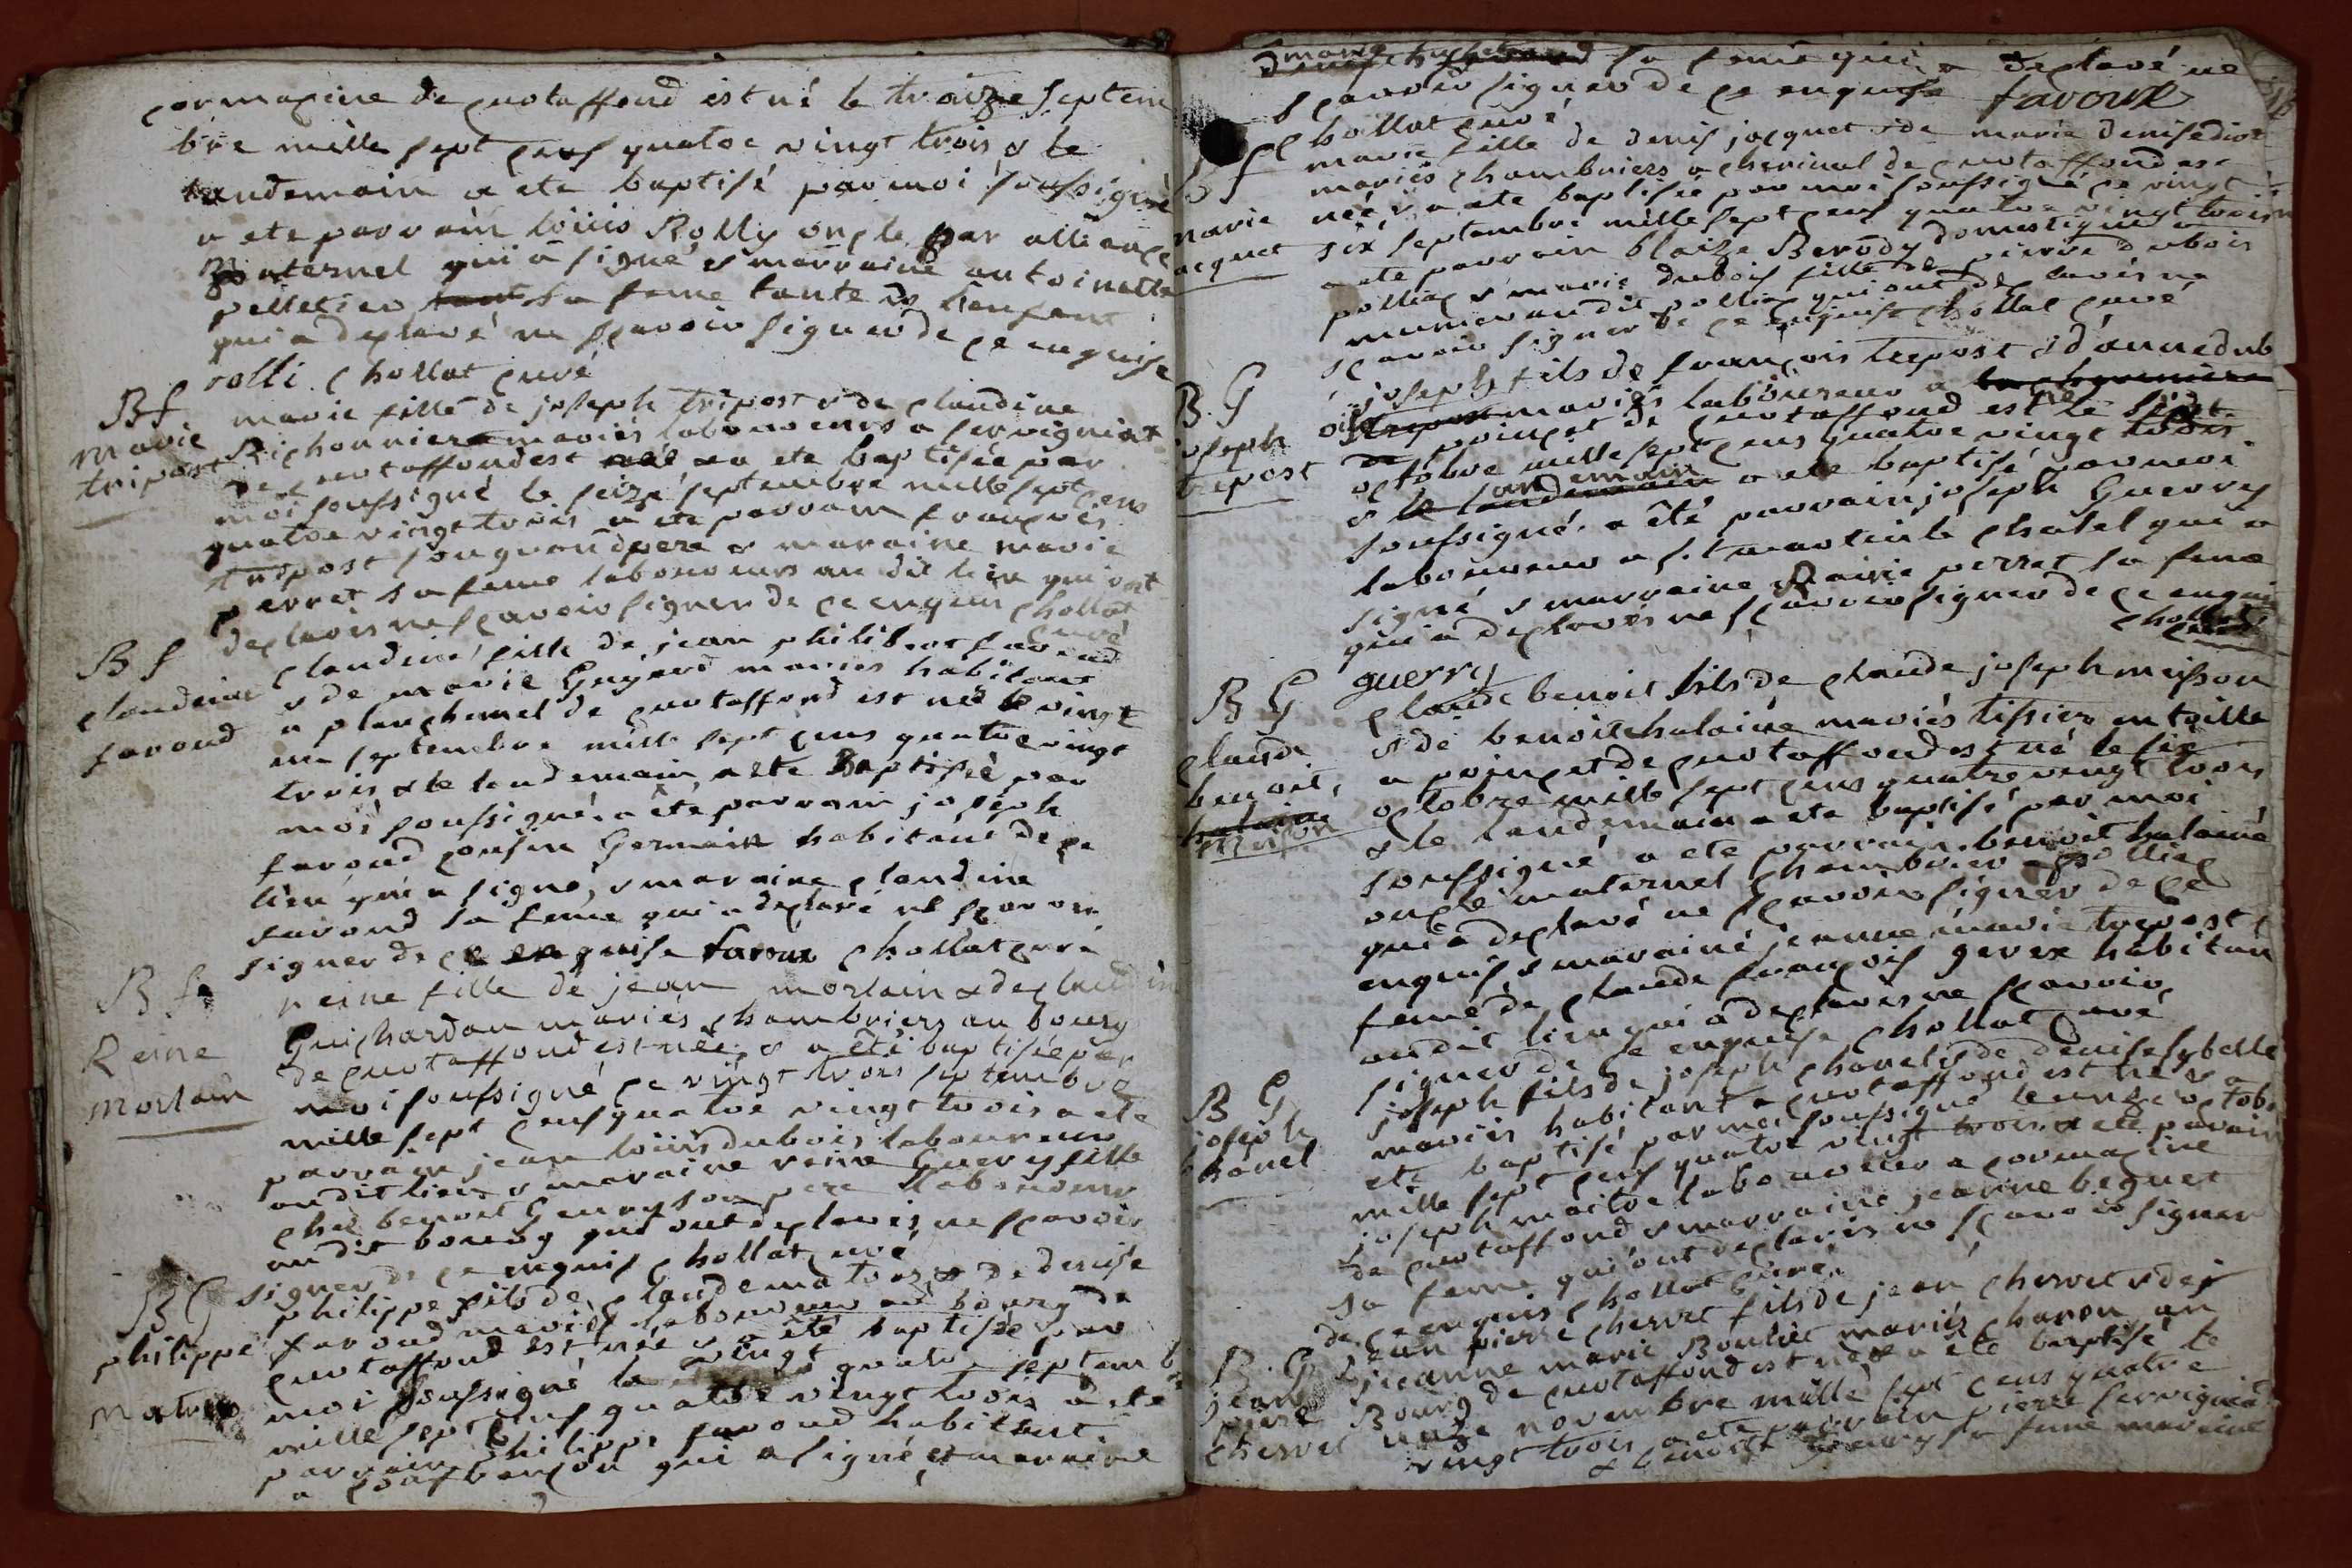 cormacine de cuotaffoud est né le traize septem
bre mille sept cens quatre vingt trois & le
landemain a ete baptisé par moi soussigné
a ete parrain louis Rolly oncle par alliance
maternel qui a signé & marraine antoinette
pelletier sa feme tante de l'enfant
qui a declaré ne scavoir signer de ce enquise
rolli. chollat curé
B f marie fille de joseph tripost & de claudine
marie Richonniere mariés laboureurs a servigniat
tripost de cuotaffoud est née & a ete baptisée par
moi soussigné le seize septembre mille sept cens
quatre vingt trois a ete parrain françois
tripost son grand pere & maraine marie
perret sa feme laboureurs au dit lieu qui ont
declarés ne scavoir signer de ce enquis chollat
curé
B f claudine fille de jean philibert favoud
claudine & de marie Guyard mariés habitant
favoud a planchemel de cuotaffoud est née le vingt
un septembre mille sept cens quatre vingt
trois & le landemain a ete Baptisée par
moi soussigné. a été parrain joseph
favoud cousin Germain habitant de ce
lieu qui a signé, & maraine claudine
favoud sa feme qui a declaré ne scavoir
signer de ce enquise favoux chollat curé
B f reine fille de jean morlain & de claudin
Reine Guichardan mariés chambriers au bourg
morlain de cuotaffoud est née & a été baptisée par
moi soussigné ce vingt trois septembre
mille sept cens quatre vingt trois a ete
parrain jean louis dubois laboureur
audit lieu & maraine reine Guery fille
chez benoit Guery son pere laboureur
au dit bourg qui ont declarés ne scavoir
signer de ce enquis chollat curé
B G philippe fils de claude matras & de denise
philippe favoud mariés laboureur au bourg de
matras cuotaffoud est née & a été baptisée par
moi soussigné le vingt quatre septemb
mille sept cens quatre vingt trois a ete
parrain philippe favoud habitant
a qui a signé et maraine
sa feme qui a declaré ne
scavoir signer de ce enquise favoux
chollat curé
B f marie fille de denis jacquet & de marie denisediot
mariés chambriers a cherinal de cuotaffoud est
marie née & a ete baptisée par moi soussigné ce vingt
acquet six septembre mille sept cens quatre vingt trois
a ete parrain blaize Berody domestique a
polliac & marie dubois fille de pierre dubois
munier au dit polliac qui ont declarés ne
scavoir signer de ce enquist chollat curé
B. G joseph fils de françois trepost & d'anne dub
joseph ois mariés laboureur a
trepost poinçet de cuotaffoud est né le sept
octobre mille sept cens quatre vingt trois
& le landemain a ete baptisé par moi
soussigné. a été parrain joseph Guerry
laboureur a st martin le chatel qui a
signé & marraine Marie perret sa feme
qui a declarés ne scavoir signer de ce enquis
guerry chollat
B G claude benoit fils de claude joseph meisson
claude & de benoite halaine mariés tissier en toille
benoit, a poinçet de cuotaffoud est né le six
octobre mille sept cens quatre vingt trois
& le landemain a ete baptisé par moi
soussigné a ete parrain benoit halaine
oncle maternel chambrier a polliac
qui a declaré ne scavoir signer de ce
enquis & maraine jeanne marie trepost
feme de claude françois gerex habitan
au dit lieu qui a declarés ne scavoir
signer de ce enquise chollat curé
B G joseph fils de joseph chanel & de denise sybelle
joseph mariés habitant a cuotaffoud est né & a
chanel ete baptisé par moi soussigné le unze octob
mille sept cens quatre vingt trois a ete parain
joseph maitre laboureur a cormacine
de cuotaffoud & marraine jeanne beguet
sa feme qui ont declarés ne scavoir signer
de ce enquis chollat curé.
B. G jean pierre chervet fils de jean chervet & de
jean jeanne marie Boulié mariés charon au
pierre Bourg de cuotaffoud est né & a ete baptisé le
chervet unze novembre mille sept cens quatre
vingt trois a ete parrain pierre servigniat
& benoite guery sa feme maraine